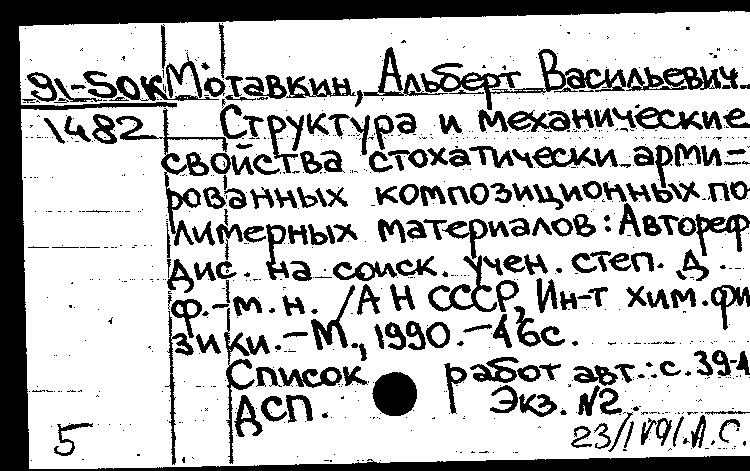 91-50к Мотавкин, Альберт Васильевич
1482 Структура и механические
свойства стохатически арми-
рованных композиционных по
лимерных материалов: Автореф
дис. на соиск. учен. степ. д.
ф.-м.н. /АН СССР, Ин-т хим.фи
зики.-М., 1990.-46с.
Список работ авт.: с. 39-4
ДСП. Экз. №2.
5 23/IV91.А.С.